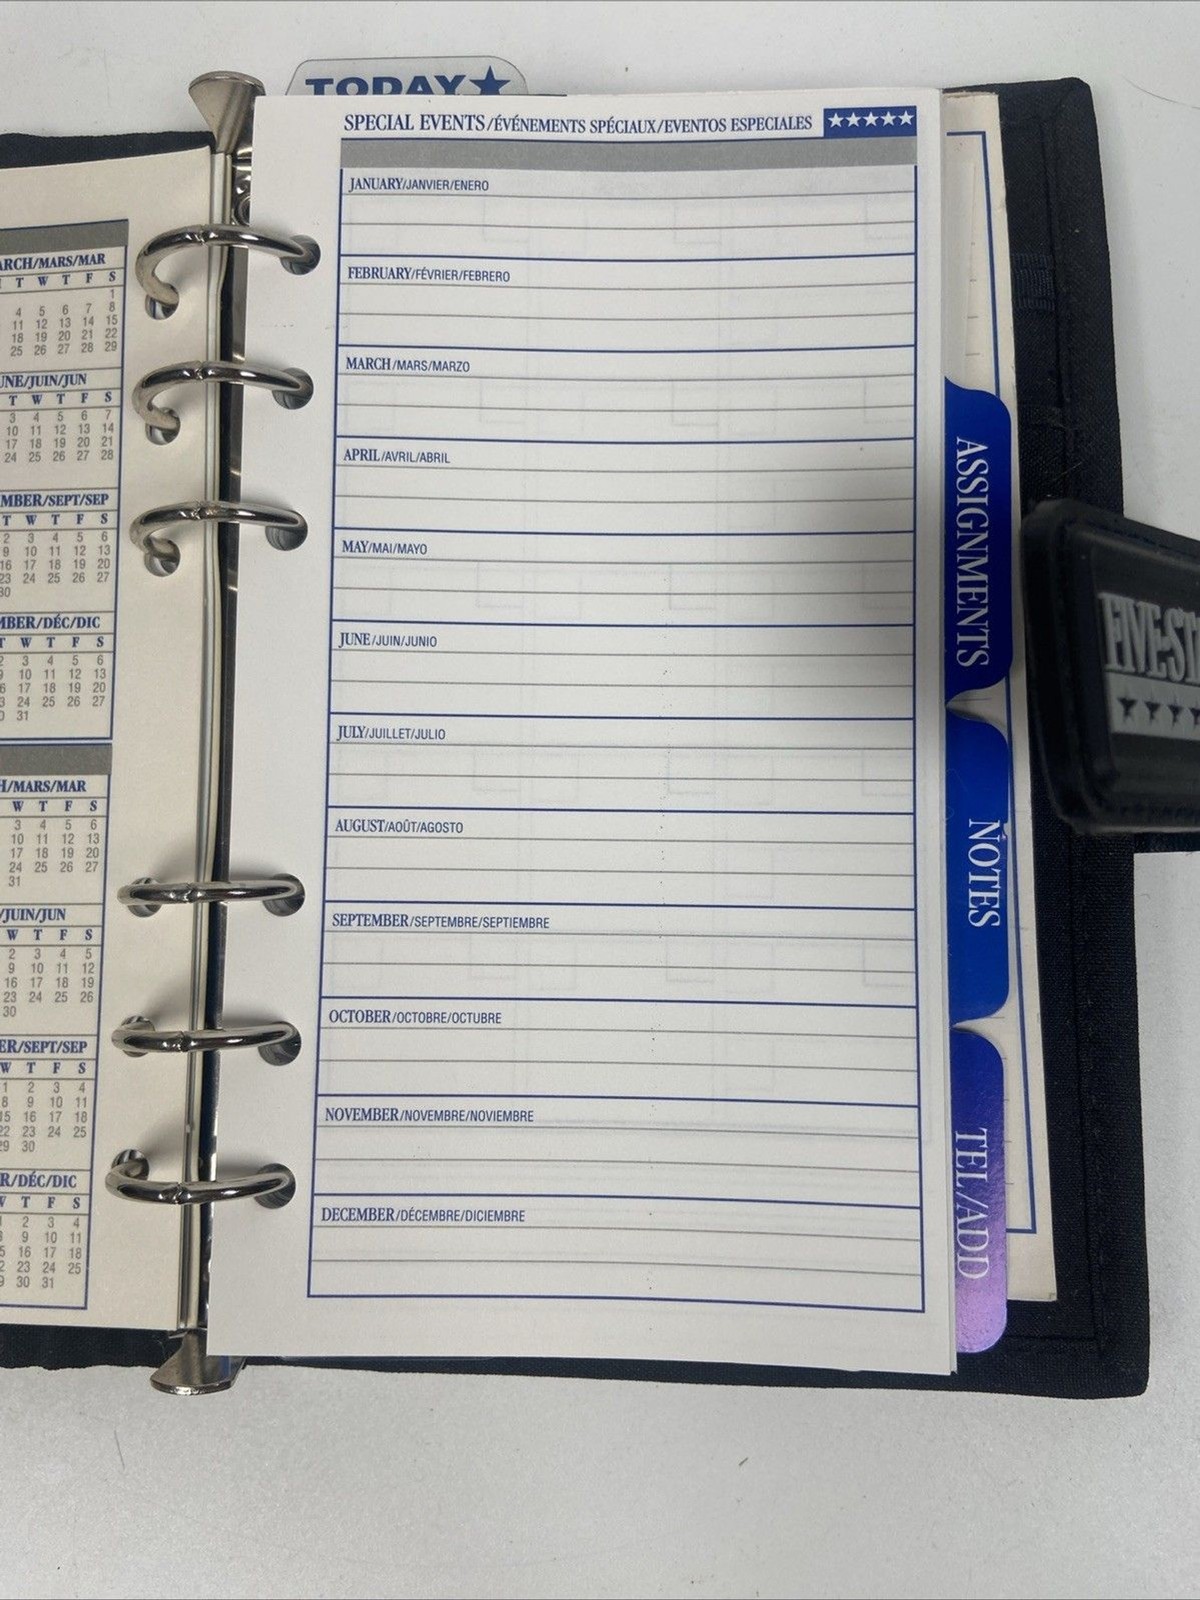 TODAY★
ARCH/MARS/MAR
T W T F S
1
4 5 6 7 8
11 12 13 14 15
18 19 20 21 22
25 26 27 28 29
UNE/JUIN/JUN
T W T F S
3 4 5 6 7
10 11 12 13 14
17 18 19 20 21
24 25 26 27 28
MBER/SEPT/SEP
T W T F S
2 3 4 5 6
9 10 11 12 13
16 17 18 19 20
23 24 25 26 27
30
MBER/DÉC/DIC
T W T F S
2 3 4 5 6
9 10 11 12 13
16 17 18 19 20
23 24 25 26 27
30 31
H/MARS/MAR
W T F S
3 4 5 6
10 11 12 13
17 18 19 20
24 25 26 27
31
/JUIN/JUN
W T F S
2 3 4 5
9 10 11 12
16 17 18 19
23 24 25 26
30
ER/SEPT/SEP
W T F S
1 2 3 4
8 9 10 11
15 16 17 18
22 23 24 25
29 30
R/DÉC/DIC
W T F S
1 2 3 4
8 9 10 11
15 16 17 18
22 23 24 25
29 30 31
SPECIAL EVENTS/ÉVÉNEMENTS SPÉCIAUX/EVENTOS ESPECIALES ★★★★★
JANUARY/JANVIER/ENERO
FEBRUARY/FÉVRIER/FEBRERO
MARCH/MARS/MARZO
APRIL/AVRIL/ABRIL
MAY/MAI/MAYO
JUNE/JUIN/JUNIO
JULY/JUILLET/JULIO
AUGUST/AOÛT/AGOSTO
SEPTEMBER/SEPTEMBRE/SEPTIEMBRE
OCTOBER/OCTOBRE/OCTUBRE
NOVEMBER/NOVEMBRE/NOVIEMBRE
DECEMBER/DÉCEMBRE/DICIEMBRE
ASSIGNMENTS
NOTES
TEL/ADD
FIVE★ST
★★★★